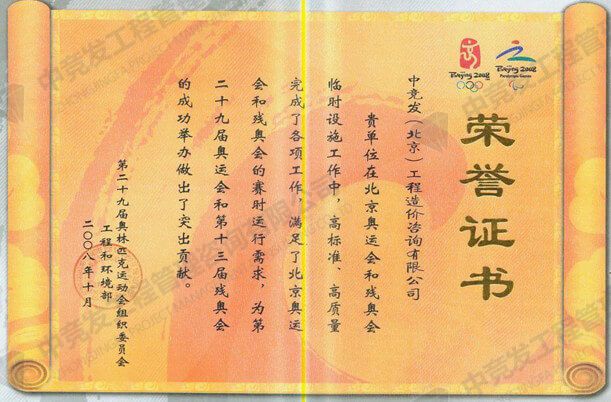 荣誉证书
Beijing 2008
Beijing 2008
Paralympic Games
中竞发（北京）工程造价咨询有限公司
贵单位在北京奥运会和残奥会
临时设施工作中，高标准、高质量
完成了各项工作，满足了北京奥运
会和残奥会的赛时运行需求，为第
二十九届奥运会和第十三届残奥会
的成功举办做出了突出贡献。
第二十九届奥林匹克运动会组织委员会
工程和环境部
二〇〇八年十月